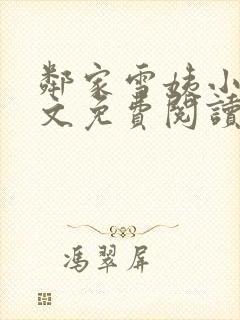 鄰家雪姨小
文免費閱讀
馮翠屏